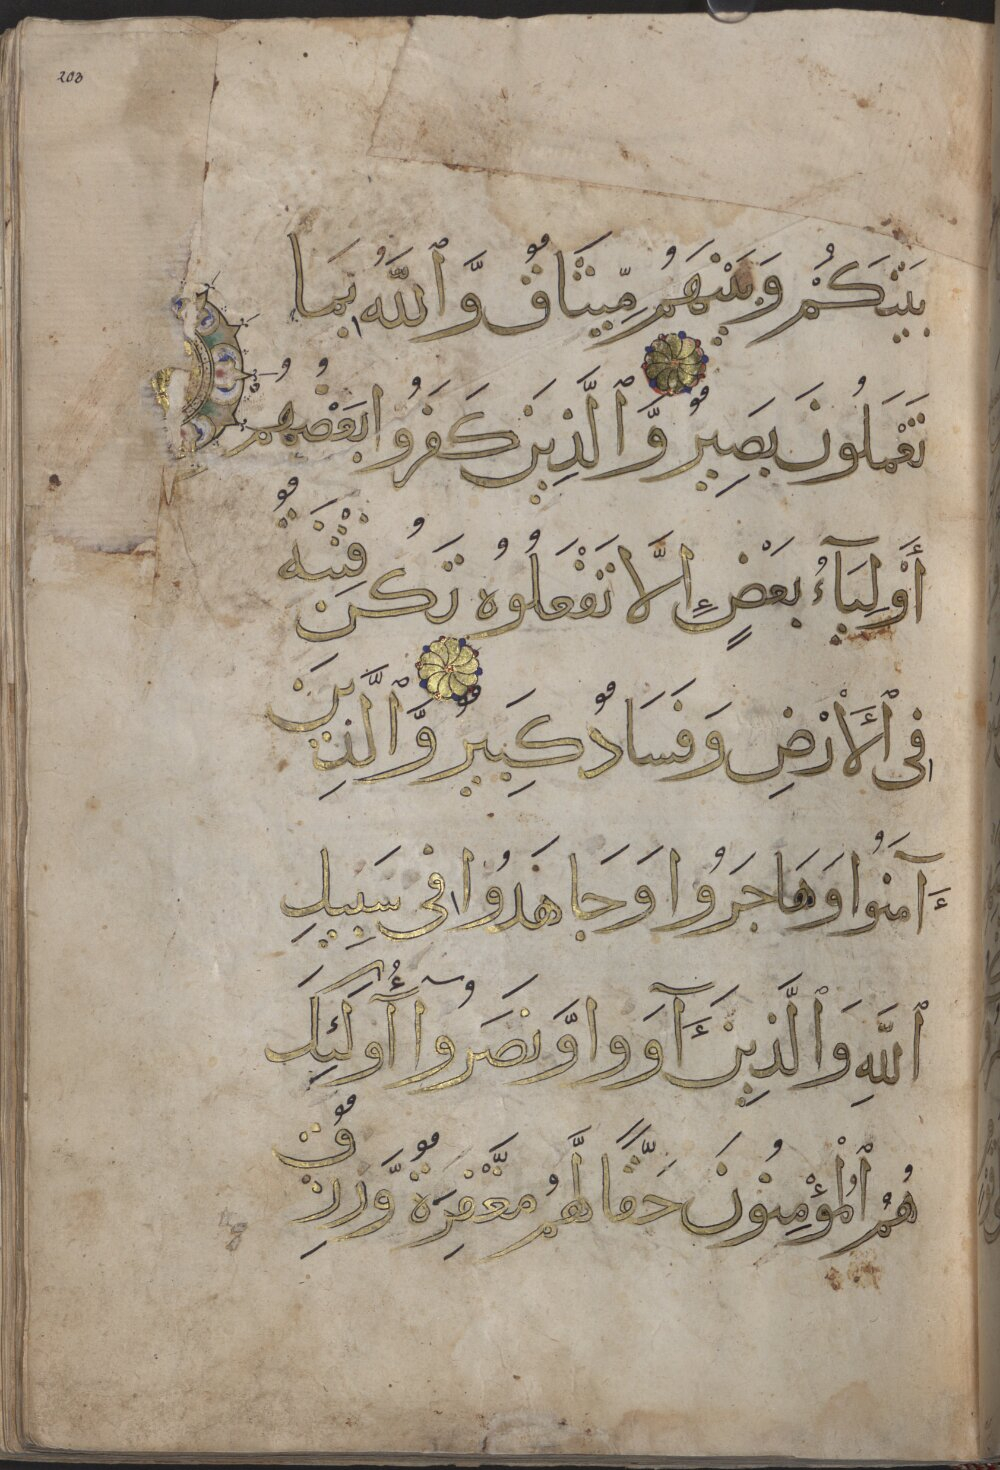 203
بَيْنَكُمْ وَبَيْنَهُم مِّيثَاقٌ وَّٱللَّهُ بِمَا
تَعْمَلُونَ بَصِيرٌ وَّٱلَّذِينَ كَفَرُوا بَعْضُهُمْ
أَوْلِيَآءُ بَعْضٍ إِلَّا تَفْعَلُوهُ تَكُن فِتْنَةٌ
فِى ٱلْأَرْضِ وَفَسَادٌ كَبِيرٌ وَّٱلَّذِينَ
ءَآمَنُوا وَهَاجَرُوا وَجَاهَدُوا فِى سَبِيلِ
ٱللَّهِ وَٱلَّذِينَ ءَآوَوا وَّنَصَرُوٓا أُولَـٰٓئِكَ
هُمُ ٱلْمُؤْمِنُونَ حَقًّا لَّهُم مَّغْفِرَةٌ وَّرِزْقٌ